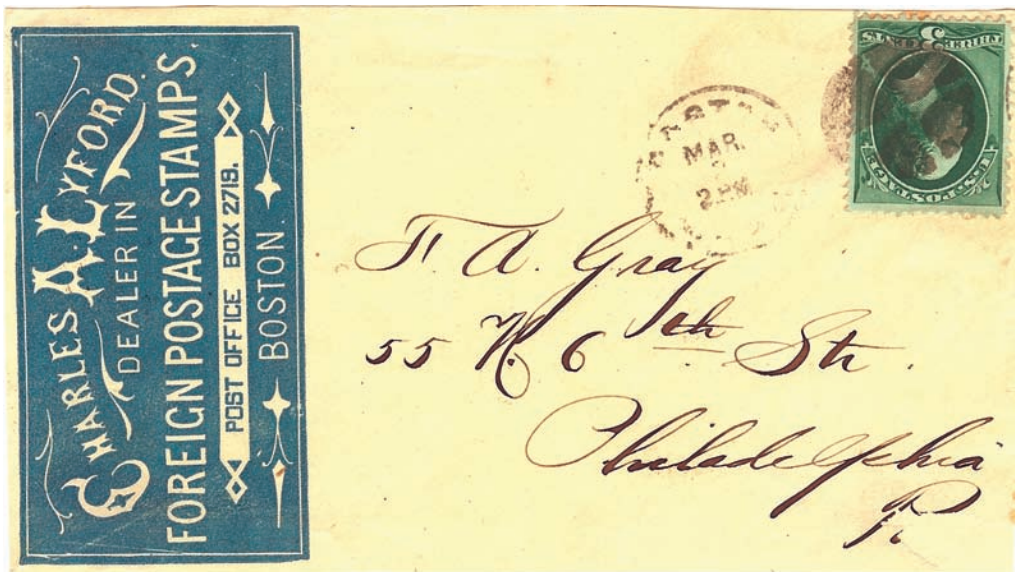 CHARLES A. LYFORD.
DEALER IN
FOREIGN POSTAGE STAMPS.
POST OFFICE BOX 2719.
BOSTON.
BOSTON
MAR.
2 PM
3
U.S. POSTAGE
F. A. Gray
55 N. 6th Str.
Philadelphia
P.